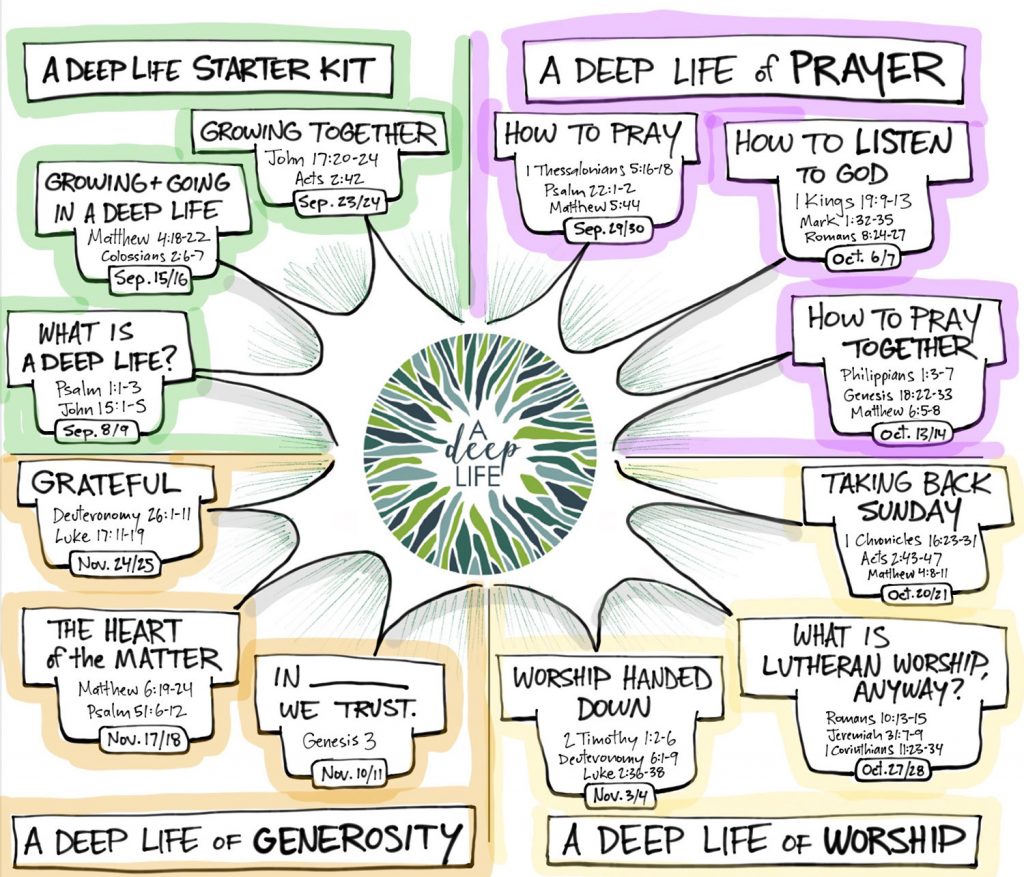 A DEEP LIFE STARTER KIT
GROWING TOGETHER
John 17:20-24
Acts 2:42
Sep. 23/24
GROWING + GOING
IN A DEEP LIFE
Matthew 4:18-22
Colossians 2:6-7
Sep. 15/16
WHAT IS
A DEEP LIFE?
Psalm 1:1-3
John 15:1-5
Sep. 8/9
A DEEP LIFE of PRAYER
HOW TO PRAY
1 Thessalonians 5:16-18
Psalm 22:1-2
Matthew 5:44
Sep. 29/30
HOW TO LISTEN
TO GOD
1 Kings 19:9-13
Mark 1:32-35
Romans 8:24-27
Oct. 6/7
HOW TO PRAY
TOGETHER
Philippians 1:3-7
Genesis 18:22-33
Matthew 6:5-8
Oct. 13/14
A
deep
LIFE
TAKING BACK
SUNDAY
1 Chronicles 16:23-31
Acts 2:43-47
Matthew 4:8-11
Oct. 20/21
WHAT IS
LUTHERAN WORSHIP,
ANYWAY?
Romans 10:13-15
Jeremiah 31:7-9
1 Corinthians 11:23-34
Oct. 27/28
WORSHIP HANDED
DOWN
2 Timothy 1:2-6
Deuteronomy 6:1-9
Luke 2:36-38
Nov. 3/4
A DEEP LIFE OF WORSHIP
GRATEFUL
Deuteronomy 26:1-11
Luke 17:11-19
Nov. 24/25
THE HEART
of the MATTER
Matthew 6:19-24
Psalm 51:6-12
Nov. 17/18
IN ________
WE TRUST.
Genesis 3
Nov. 10/11
A DEEP LIFE OF GENEROSITY